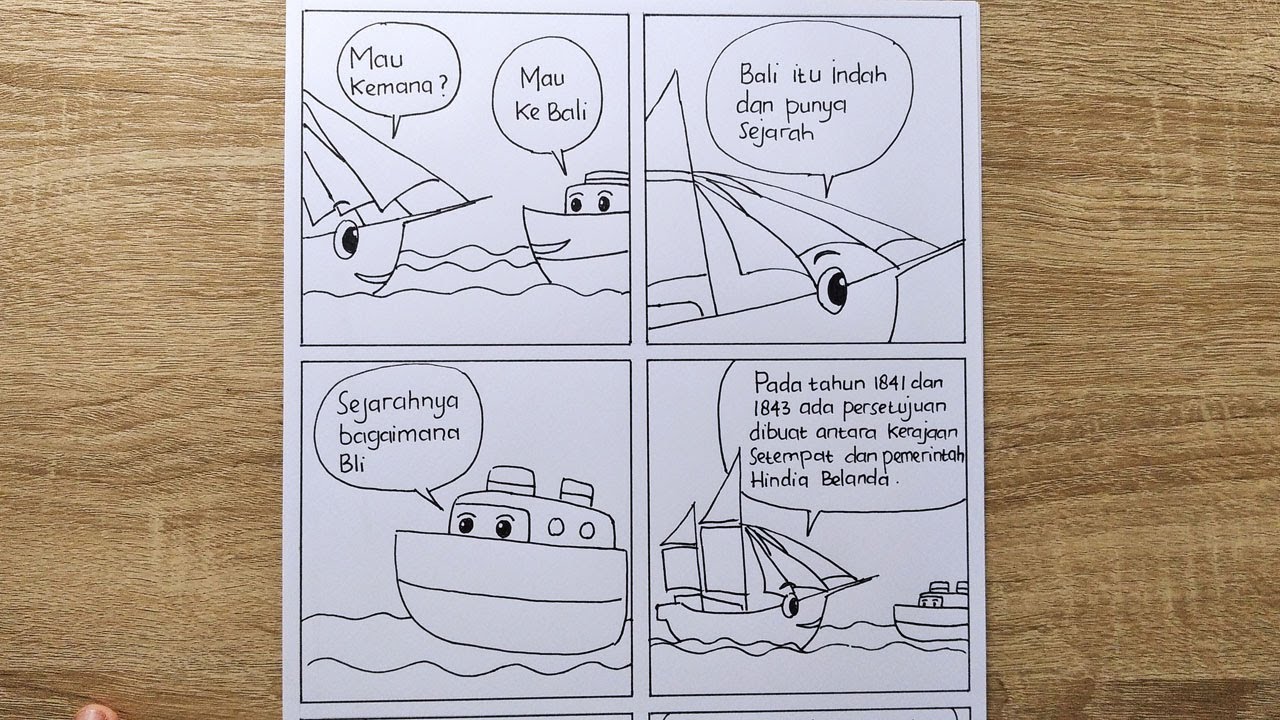 Mau
Kemana?
Mau
ke Bali
Bali itu indah
dan punya
Sejarah
Sejarahnya
bagaimana
Bli
Pada tahun 1841 dan
1843 ada persetujuan
dibuat antara kerajaan
Setempat dan pemerintah
Hindia Belanda.